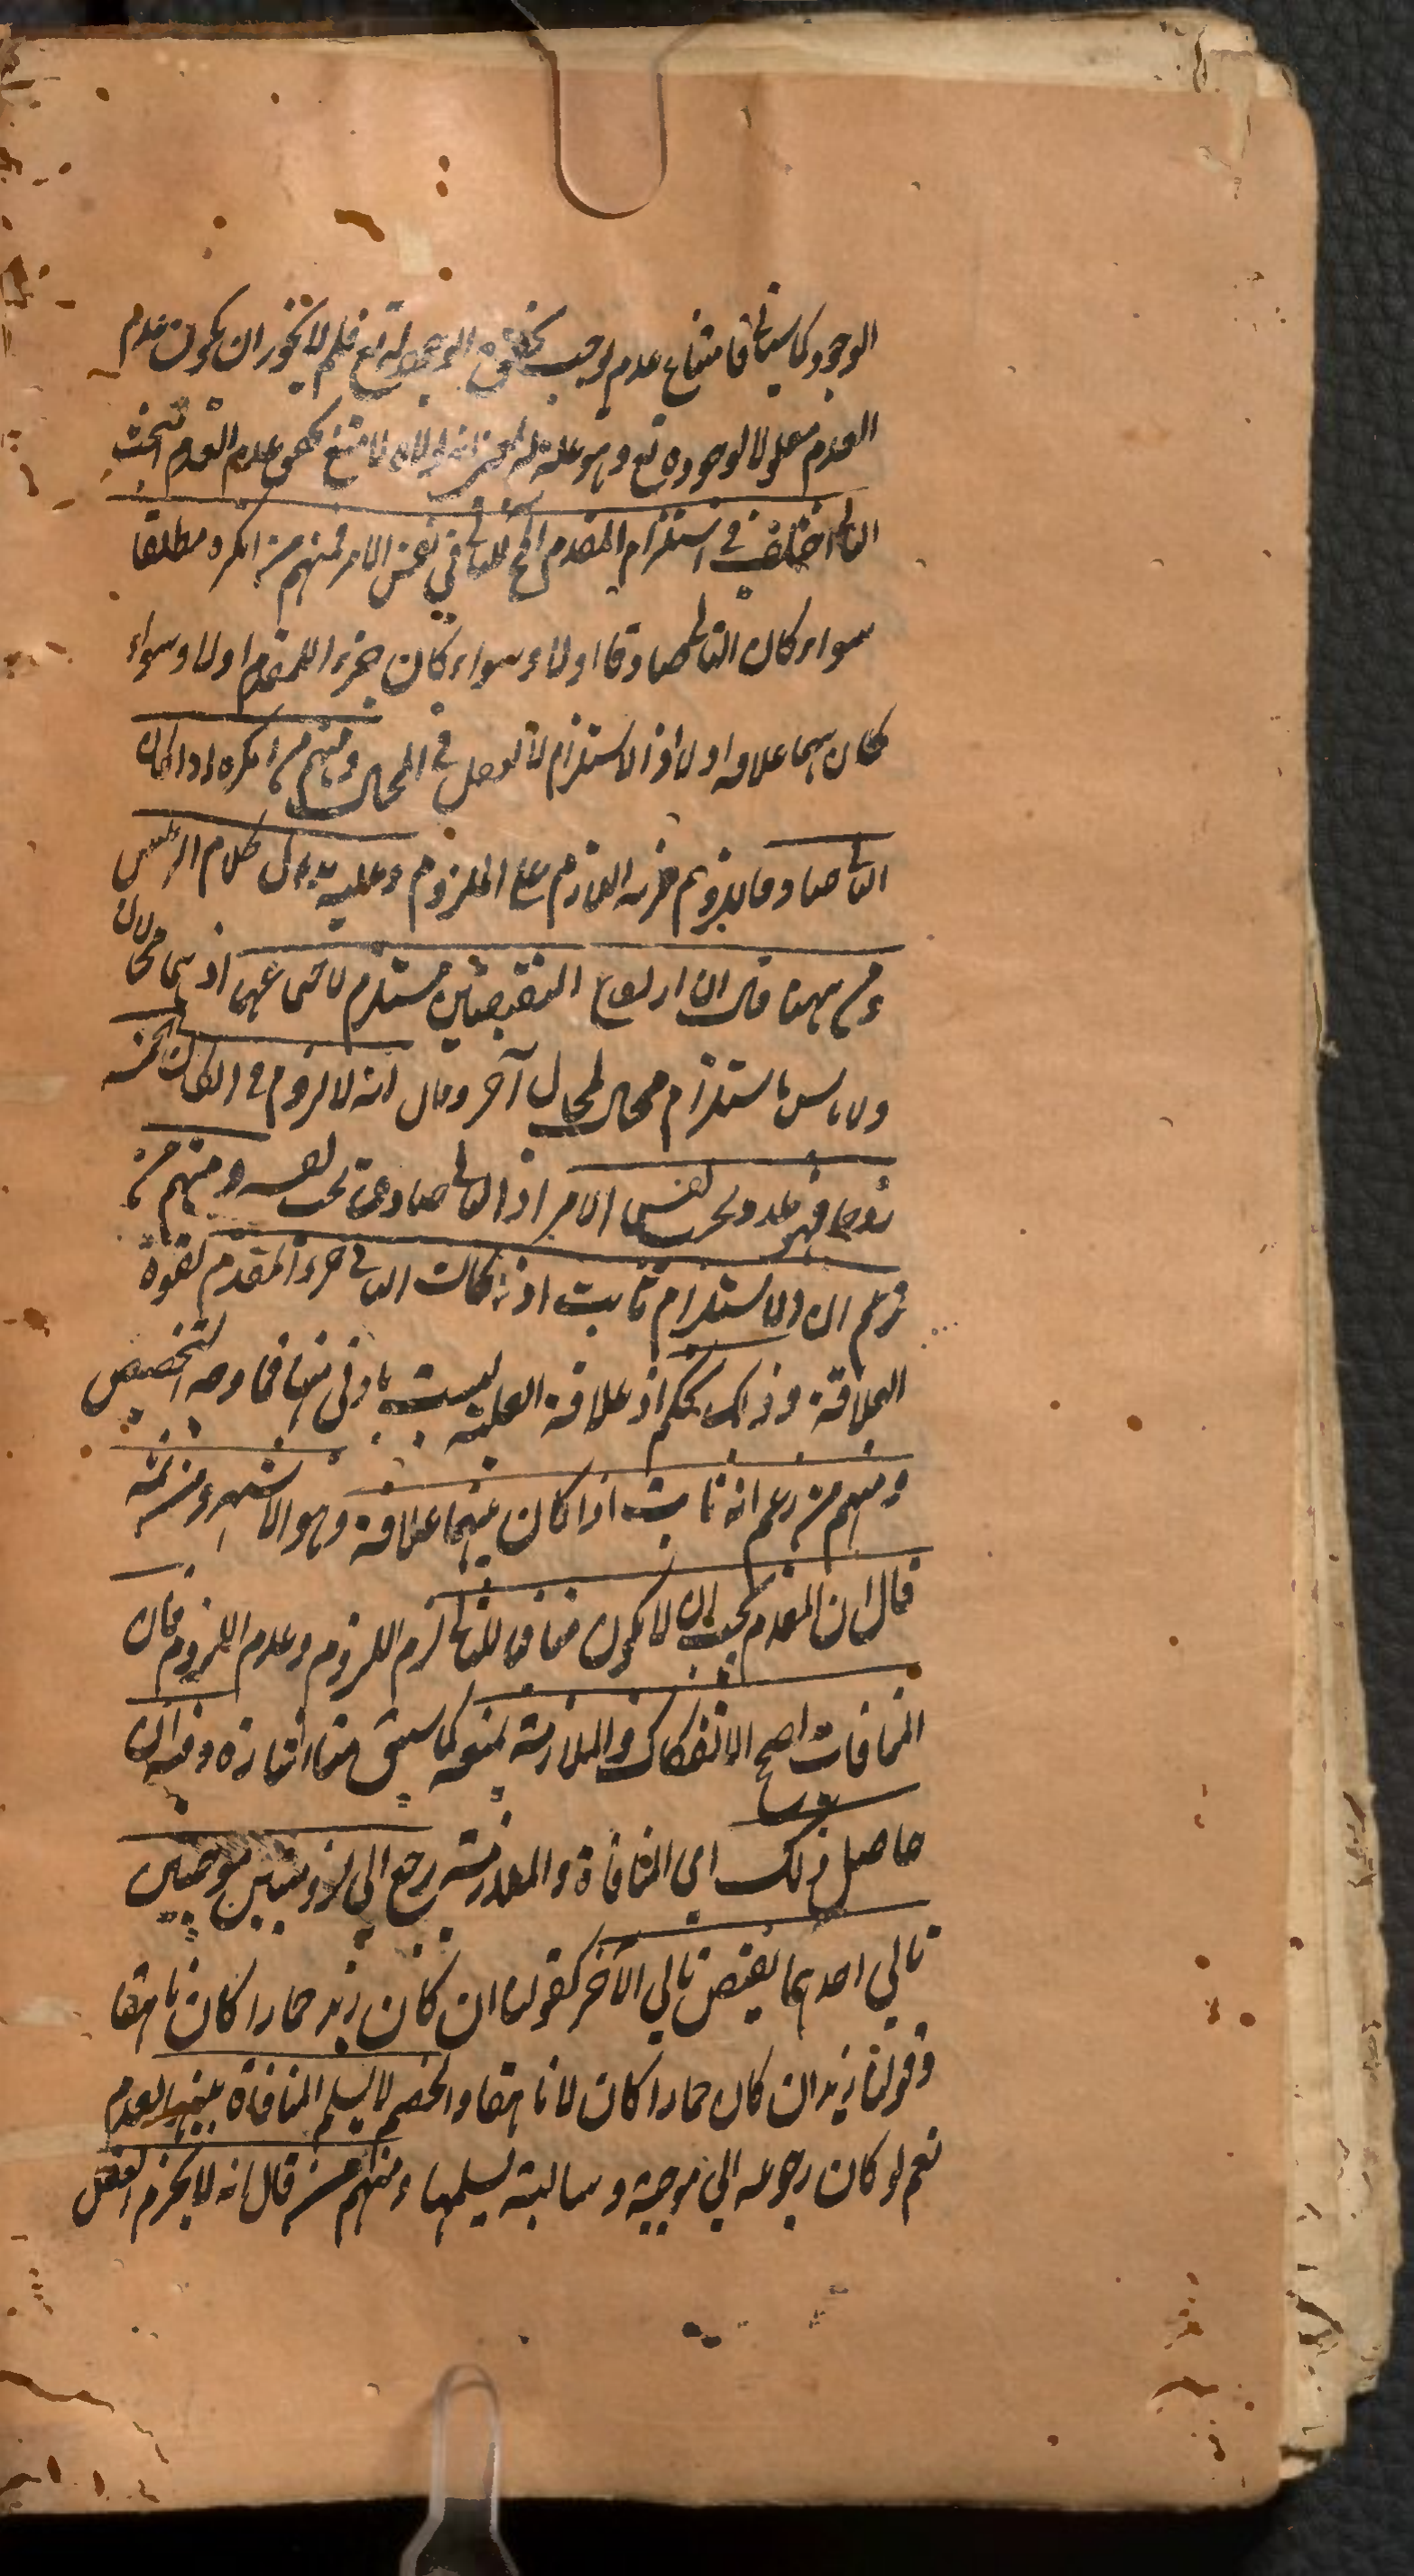 الوجود كما سياتي فامتناع عدم لوجب تحقق الوجود له تع فلم لا يجوز ان يكون عدم
العدم معلولا لوجوده تع وهو علة له لا متنع عدم العدم البحث
الثالث اختلف في استلزام المقدم المح للتالي في نفس الامر فمنهم من انكره مطلقا
سواء كان التالي صادقا اولا وسواء كان جزء اللمقدم اولا وسواء
كان بينهما علاقة اولا اذ الاستلزام لا في المحال ومنهم من انكره اذا كان
التالي صادقا اللازم على الملزوم وعليه يدل كلام الرئيس
ومن ههنا قال ان ارتفاع النقيضين مستلزم اذ هما محالان
ولا باس باستلزام محال لمحال آخر وقال انه لا لزوم في ان كان الخمسة
زوجا فهو عدد بحسب نفس الامر اذ التالي صادق بحسب نفسه ومنهم من
زعم ان الاستلزام ثابت اذا كانت التالي جزء المقدم لقوة
العلاقة وذلك تحكم اذ علاقة العلية ليست بادنى منها فما وجه التخصيص
ومنهم من زعم انه ثابت اذا كان بينهما علاقة وهو الاشهر ومن ثمه
قال ان المقدم يجب ان لا يكون منافيا للتالي لزم اللزوم وعدم اللزوم فان
المنافات تصحح الانفكاك والملازمة تمنعه كما سبق منا اشارة وفيه ان
حاصل ذلك اي المنافاة والملازمة يرجع الى لزوميتين موجبتين
تالي احدهما نقيض تالي الآخر كقولنا ان كان زيد حمارا كان ناهقا
وقولنا زيد ان كان حمارا كان لا ناهقا والخصم لا يسلم المنافاة بينهما لعدم
نعم لو كان رجوعه الى موجبة وسالبة يسلمها ومنهم من قال انه لا يجزم العقل